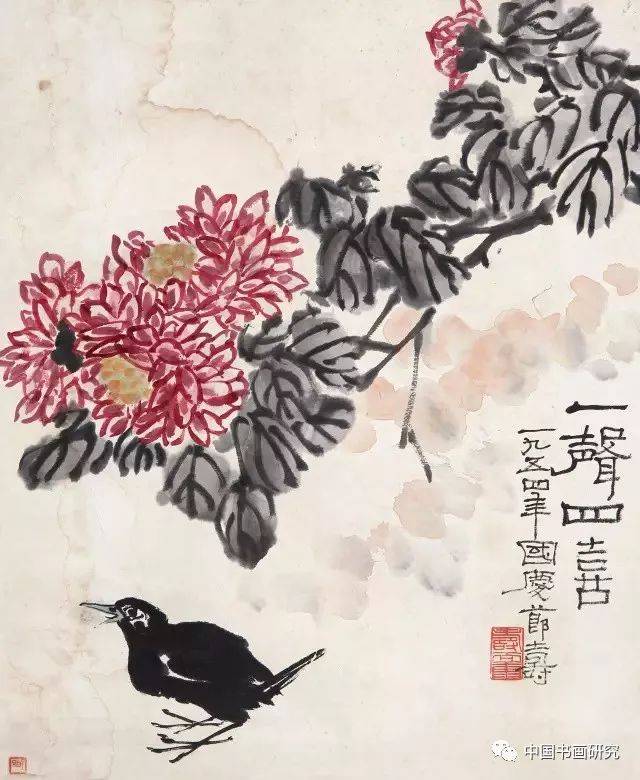 一聲四喜
一九五四年國慶節壽
中国书画研究